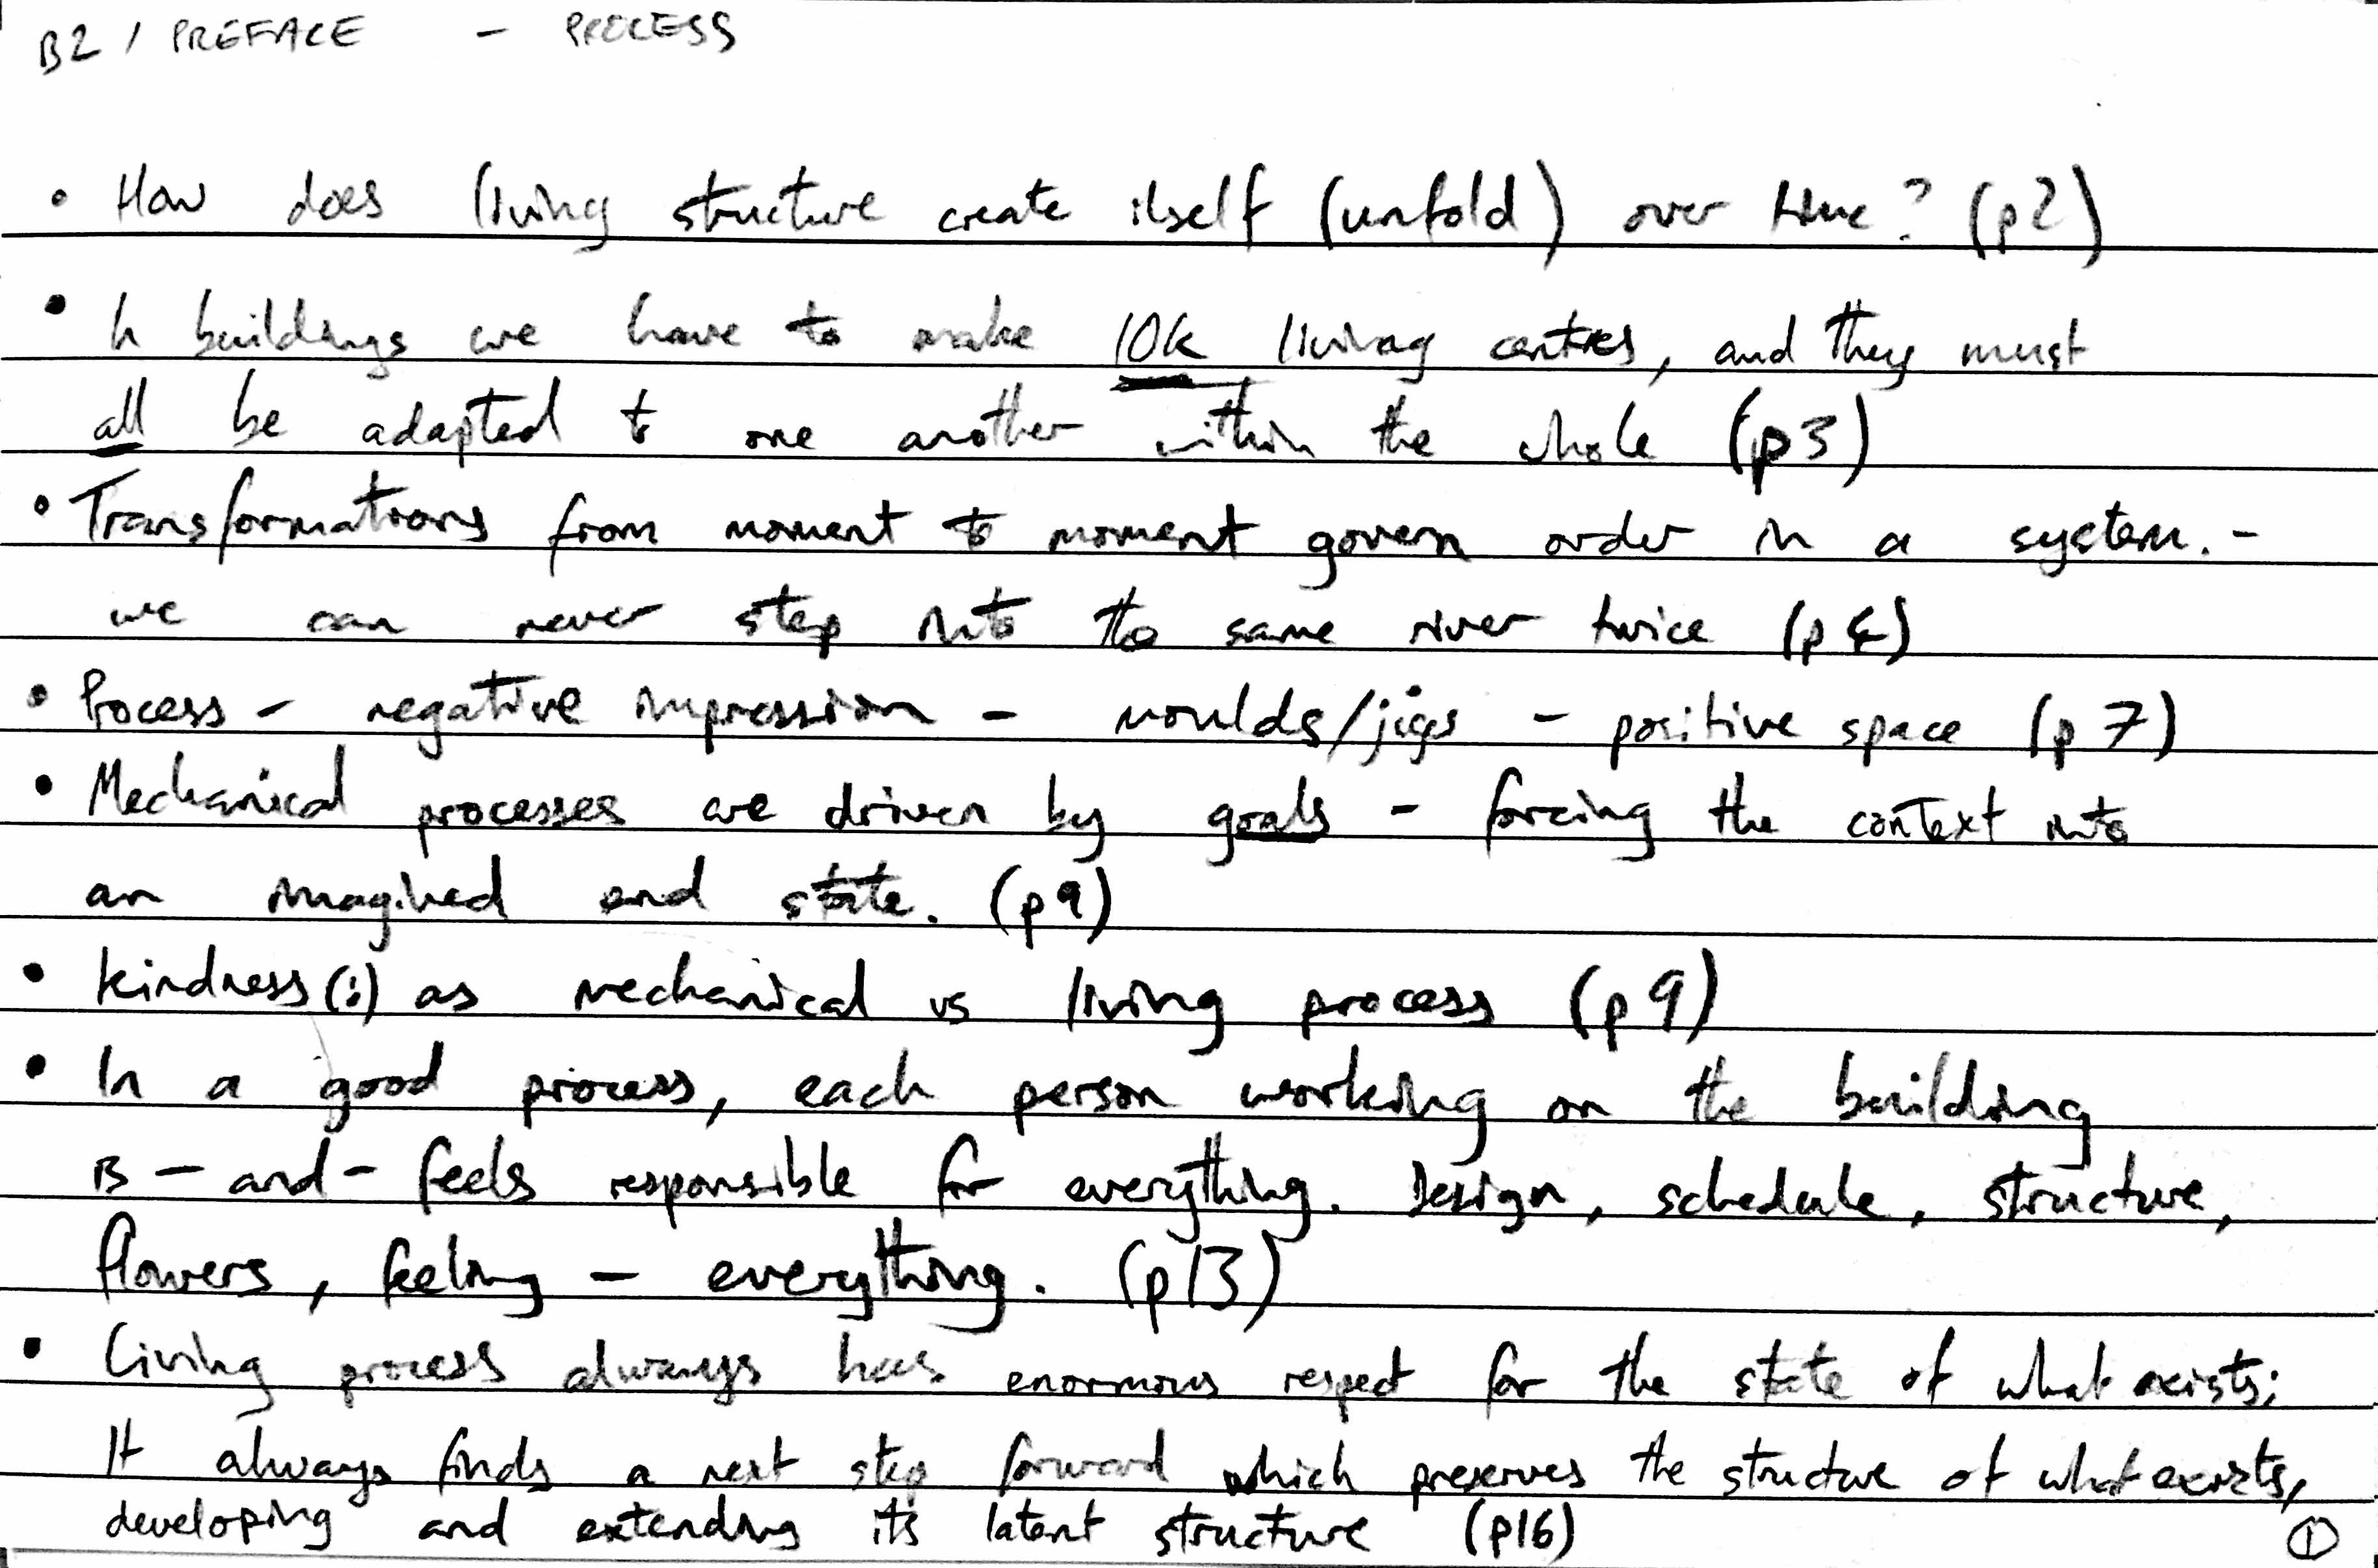 B2 / PREFACE - PROCESS
• How does living structure create itself (unfold) over time? (p2)
• In buildings we have to make 10k living centres, and they must
all be adapted to one another within the whole (p3)
• Transformations from moment to moment govern order in a system. -
we can never step into the same river twice (p4)
• Process - negative impression - moulds/jigs - positive space (p7)
• Mechanical processes are driven by goals - forcing the context into
an imagined end state. (p9)
• kindness (:) as mechanical vs living process (p9)
• In a good process, each person working on the building
is - and - feels responsible for everything. Design, schedule, structure,
flowers, feeling - everything. (p13)
• Living process always has enormous respect for the state of what exists;
It always finds a next step forward which preserves the structure of what exists,
developing and extending its latent structure (p16)
1